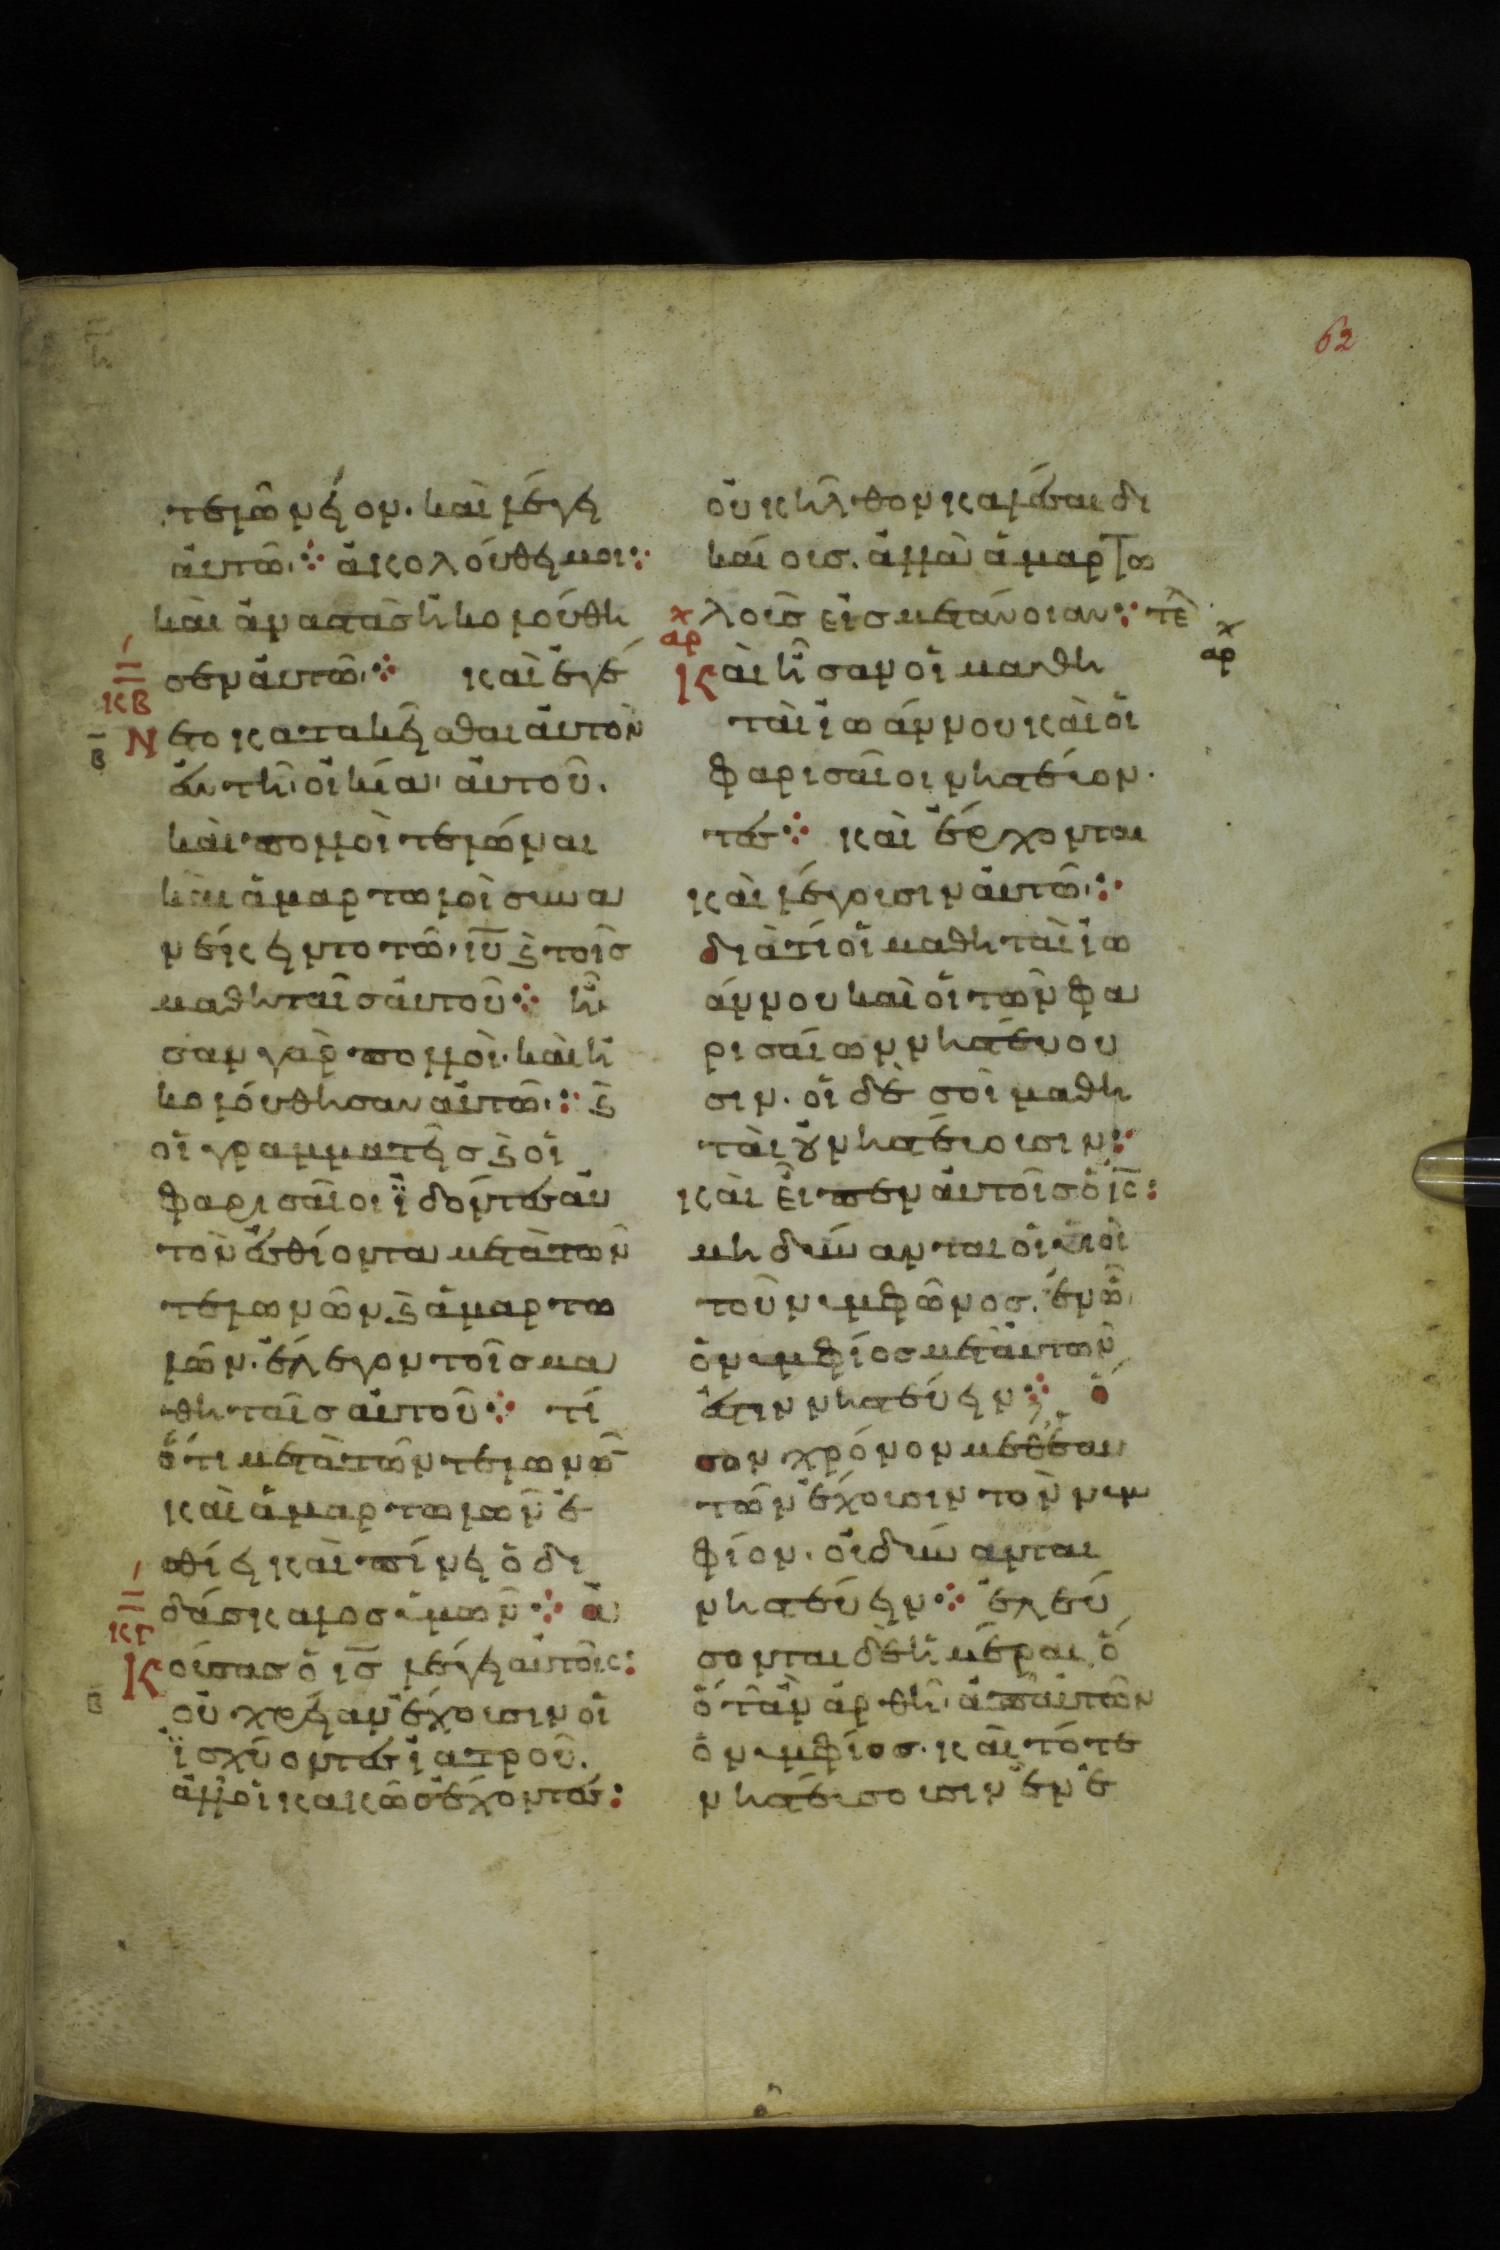 62
τελώνειον· καὶ λέγει
αὐτῶ· ἀκολούθει μοι:
καὶ ἀναστὰς ἠκολούθη
σεν αὐτῶ· καὶ ἐγέ
κβ
Νετο κατακεῖσθαι αὐτὸν
β
ἐν τῆ οἰκία αὐτοῦ.
καὶ πολλοὶ τελώναι
καὶ ἁμαρτωλοὶ συνα
νέκειντο τῶ ιυ ϗ τοῖς
μαθηταῖς αὐτοῦ ἦ
σαν γὰρ πολλοὶ· καὶ ἠ
κολόυθησαν αὐτῶ: ϗ
οἱ γραμματεῖς ϗ οἱ
φαρισαῖοι ϊδόντες αὐ
τὸν ἐσθίοντα μετὰ τῶν
τελωνῶν ϗ ἁμαρτω
λῶν· ἔλεγον τοῖς μα
θηταῖς αὐτοῦ τί
ὅτι μετὰ τῶν τελωνῶ
καὶ ἁμαρτωλῶν ἐ
σθίει καὶ πίνει ὁ δι
δάσκαλος ὑμῶν ἀ
κγ
Κούσας ὁ ις λέγει αὐτοῖς:
β
οὐ χρείαν ἔχουσιν οἱ
ϊσχύοντες ἰατροῦ.
ἀλλ' οἱ κακῶς ἔχοντες:
οὐκ ἦλθον καλέσαι δι
καίοις. ἀλλὰ ἁμαρτω
λοῖς εἰς μετάνοιαν: τε
αρ
αρ
Καὶ ἦσαν οἱ μαθη
ταὶ ἰωάννου καὶ οἱ
φαρισαῖοι νηστέυον·
τες καὶ ἔρχονται
καὶ λέγουσιν αὐτῶ:
διὰ τί οἱ μαθηταὶ ἰω
άννου καὶ οἱ τῶν φα
ρισαίων νηστέυου
σιν· οἱ δὲ σοὶ μαθη
ταὶ οὐ νηστέυουσιν:
καὶ εἶπεν αὐτοῖς ὁ ις:
μὴ δύνανται οἱ υἱοὶ
τοῦ νυμφῶνος. ἐν ὧ
ὁ νυμφίος μετ' αὐτῶν
ἐστιν νηστεύειν ὅ
σον χρόνον μεθ' ἑαυ
τῶν ἔχουσιν τὸν νυμ
φίον· οὐ δύνανται
νηστεύειν ἐλεύ
σονται δὲ ἡμέραι ὅ
ὅταν ἀρθῆ ἀπ' αὐτῶν
ὁ νυμφίος· καὶ τότε
νηστέυσουσιν ἐν ἐ